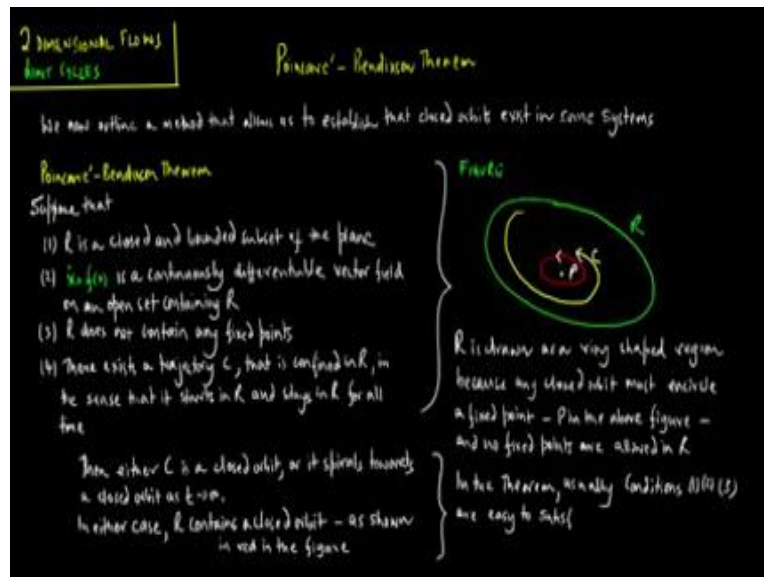 2 DIMENSIONAL FLOWS
LIMIT CYCLES
Poincaré-Bendixson Theorem
We now outline a method that allows us to establish that closed orbits exist in some systems
Poincaré-Bendixson Theorem
Suppose that
(1) R is a closed and bounded subset of the plane
(2) ẋ=f(x) is a continuously differentiable vector field
on an open set containing R
(3) R does not contain any fixed points
(4) There exist a trajectory C, that is confined in R, in
the sense that it starts in R and stays in R for all
time
Then either C is a closed orbit, or it spirals towards
a closed orbit as t→∞.
In either case, R contains a closed orbit - as shown
in red in the figure
FIGURE
R
C
P
R is drawn as a ring shaped region
because any closed orbit must encircle
a fixed point - P in the above figure -
and no fixed points are allowed in R
In the Theorem, usually Conditions (1)(2)(3)
are easy to satisf